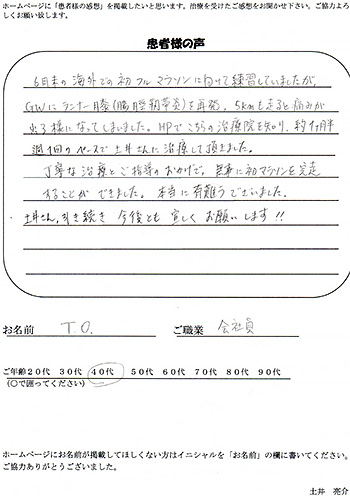 ホームページに「患者様の感想」を掲載したいと思います。治療を受けてのご感想をお聞かせ下さい。ご協力よろ
しくお願い致します。
患者様の声
6月末の海外での初フルマラソンに向けて練習していましたが、
GWにランナー膝(腸脛靭帯炎)を再発、5kmも走ると痛みが
出る様になってしまいました。HPでこちらの治療院を知り、約1ヶ月半
週1回のペースで土井さんに治療して頂きました。
丁寧な治療とご指導のおかげで、無事に初マラソンを完走
することができました。本当に有難うございました。
土井さん、引き続き今後とも宜しくお願いします!!
お名前 T.O. ご職業 会社員
ご年齢20代 30代 40代 50代 60代 70代 80代 90代
(○で囲ってください)
ホームページにお名前が掲載してほしくない方はイニシャルを「お名前」の欄に書いてください。
ご協力ありがとうございました。
土井 亮介